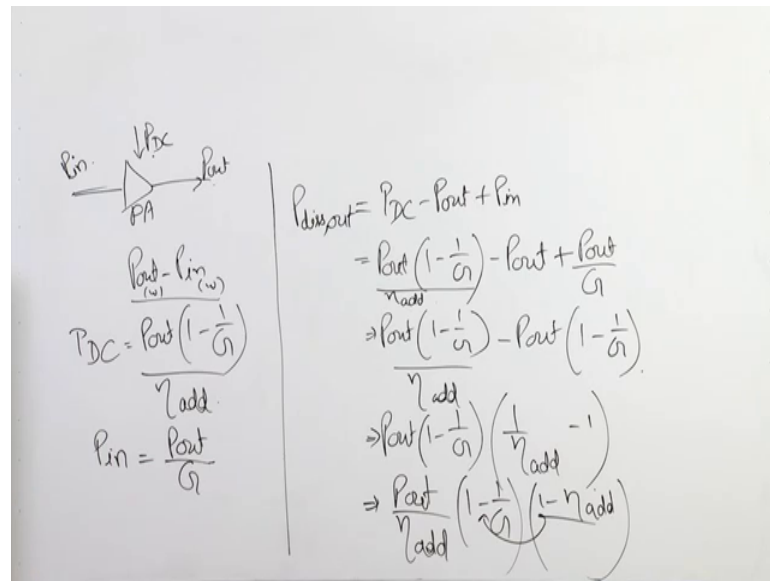 ↓PDC
Pin Pout
PA
Pout - Pin
(w) (w)
PDC = Pout (1 - 1/G) / ηadd
Pin = Pout/G
Pdiss,out = PDC - Pout + Pin
= Pout/ηadd (1 - 1/G) - Pout + Pout/G
⇒ Pout (1 - 1/G) / ηadd - Pout (1 - 1/G)
⇒ Pout (1 - 1/G) (1/ηadd - 1)
⇒ Pout/ηadd (1 - 1/G) (1 - ηadd)